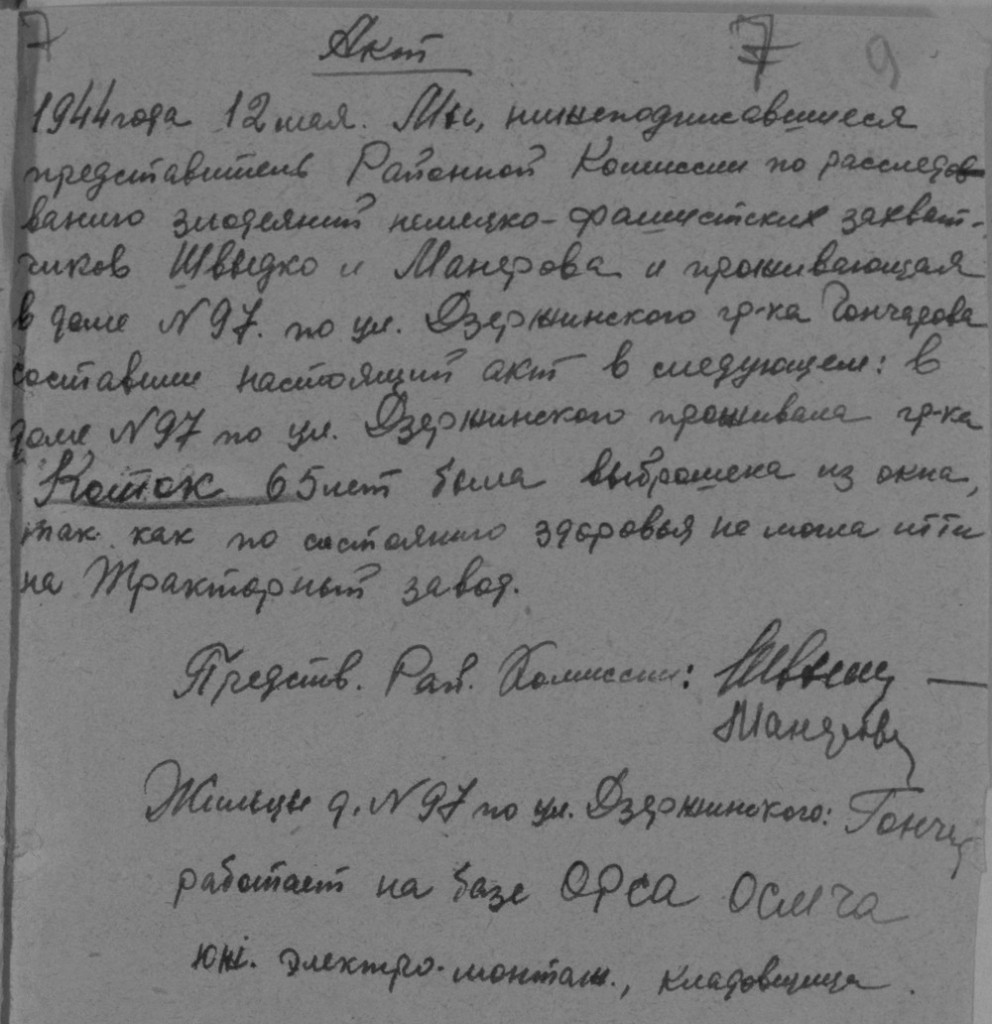 7 Акт 7 9
1944 года 12 мая. Мы, нижеподписавшиеся
представитель Районной Комиссии по расследов-
ванию злодеяний немецко-фашистских захват-
чиков Швыдко и Манерова и проживающая
в доме №97. по ул. Дзержинского гр-ка Гончарова
составили настоящий акт в следующем: в
доме №97 по ул. Дзержинского проживала гр-ка
65 лет была выброшена из окна,
так как по состоянию здоровья не могла итти
на Тракторный завод.
Предств. Рай. Комиссии:
Манерова
Жильцы д. №97 по ул. Дзержинского: Гонча
работает на базе ОРСа ОСМЧа
юж. электро-монтаж., кладовщица.